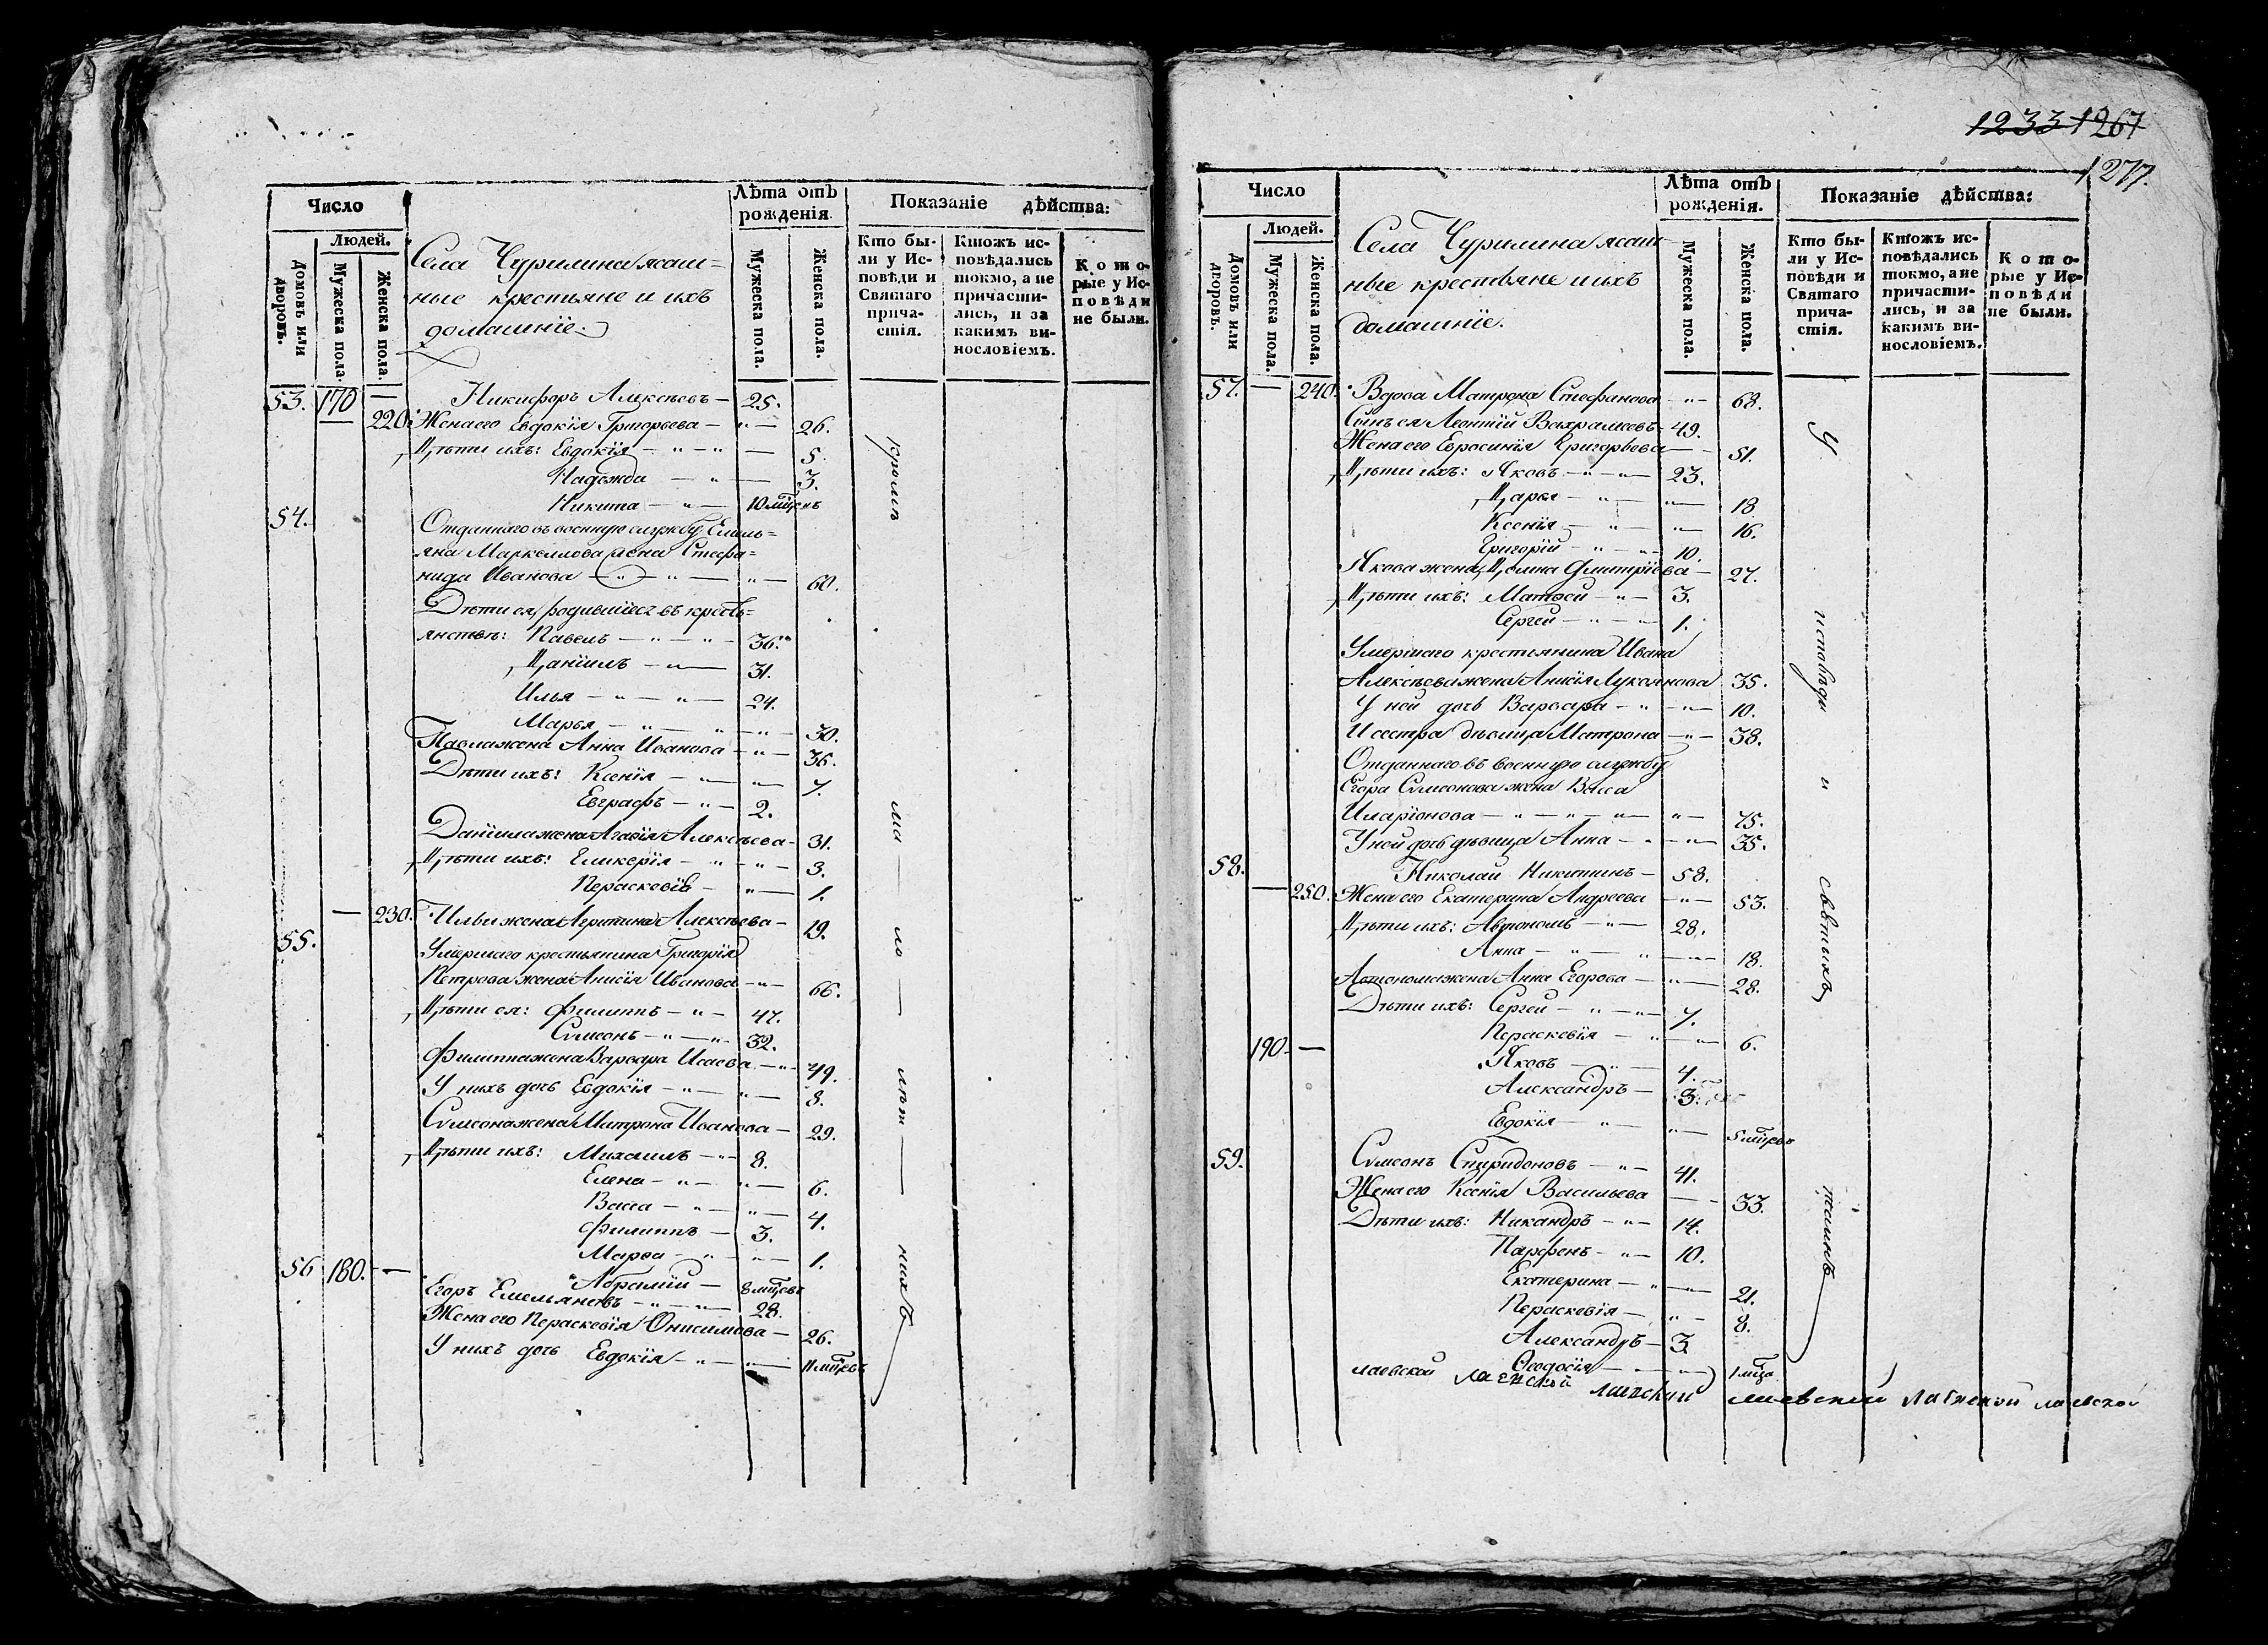 Число
Людей.
Домовъ или дворовъ.
Мужеска пола.
Женска пола.
Села Чурилина ясаш=
ные крестьяне и ихъ
домашніе.
Лѣта отъ рожденія.
Мужеска пола.
Женска пола.
Показаніе дѣйства:
Кто бы-
ли у Ис-
повѣди и
Святаго
прича-
стія.
Ктожъ ис-
повѣдались
токмо, а не
причасти-
лись, и за
какимъ ви-
нословіемъ.
Кото-
рые у Ис-
повѣди
не были.
53. 170 — Никифоръ Алексѣевъ — 25.
220. Жена его Евдокія Григорьева — 26.
Дѣти ихъ: Евдокія — 5.
Надежда — 3.
Никита — 10 мцовъ
54. Отданнаго въ военную службу Емель=
яна Маркеллова жена Стефа=
нида Иванова — 60.
Дѣти ея, родившіеся въ кресть=
янствѣ: Павелъ — 36.
Даніилъ — 31.
Илья — 24.
Марья — 30.
Павла жена Анна Иванова — 36.
Дѣти ихъ: Ксенія — 7.
Евграфъ — 2.
Даніила жена Агафія Алексѣева — 31.
Дѣти ихъ: Гликерія — 3.
Параскевія — 1.
— 230. Ильи жена Агрипина Алексѣева — 19.
55. Умершаго крестьянина Григорія
Петрова жена Анисія Иванова — 66.
Дѣти ея: Филиппъ — 47.
Сѵмеонъ — 32.
Филиппа жена Варвара Исаева — 49.
У нихъ дочь Евдокія — 8.
Сѵмеона жена Матрона Иванова — 29.
Дѣти ихъ: Михаилъ — 8.
Елена — 6.
Васса — 4.
Филиппъ — 3.
Марѳа — 1.
Абрамій — 8 мцовъ
56 180. — Егоръ Емельяновъ — 28.
Жена его Пераскевія Онисимова — 26.
У нихъ дочь Евдокія — 11 мцовъ
кромѣ
ма — ло — лѣт — нихъ
1233 1267
1277.
Число
Людей.
Домовъ или дворовъ.
Мужеска пола.
Женска пола.
Села Чурилина ясаш-
ные крестьяне и ихъ
домашніе.
Лѣта отъ рожденія.
Мужеска пола.
Женска пола.
Показаніе дѣйства:
Кто бы-
ли у Ис-
повѣди и
Святаго
прича-
стія.
Ктожъ ис-
повѣдались
токмо, а не
причасти-
лись, и за
какимъ ви-
нословіемъ.
Кото-
рые у Ис-
повѣди
не были.
57. — 240. Вдова Матрона Стефанова — 68.
Сынъ ея Леонтій Вахрамеевъ — 49.
Жена его Евросинія Григорьева — 51.
Дѣти ихъ: Яковъ — 23.
Дарья — 18
Ксенія — 16.
Григорій — 10.
Якова жена Домна Дмитріева — 27.
Дѣти ихъ: Матѳей — 3.
Сергей — 1.
Умершаго крестьянина Ивана
Алексѣева жена Анисія Лукоянова 35.
У ней дочь Варвара — 10.
И сестра дѣвица Матрона — 38.
Отданнаго въ военную службу
Егора Сѵмеонова жена Васса
Иларіонова — 75.
У ней дочь дѣвица Анна — 35.
58. Николай Никитинъ — 58.
— 250. Жена его Екатерина Андреева — 53.
Дѣти ихъ: Автономъ — 28.
Анна — 18.
Автонома жена Анна Егорова — 28.
Дѣти ихъ: Сергей — 7.
Пераскевія — 6.
190 — Яковъ — 4.
Александръ — 3.
Евдокія — 5 мцовъ
59. Сѵмеонъ Спиридоновъ — 41.
Жена его Ксенія Васильева — 33.
Дѣти ихъ: Никандръ — 14.
Парфенъ — 10.
Екатерина — 21.
Пераскевія — 8.
Александръ — 3.
Ѳеодосія — 1 мца
У исповѣди и святыхъ таинъ
лаевской лаевской лаевской лаевской лаевской лаевской